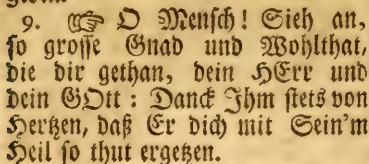 9. ☞ O Mensch! Sieh an,
so grosse Gnad und Wohlthat,
die dir gethan, dein HErr und
dein GOtt: Danck Ihm stets von
Hertzen, daß Er dich mit Sein'm
Heil so thut ergetzen.